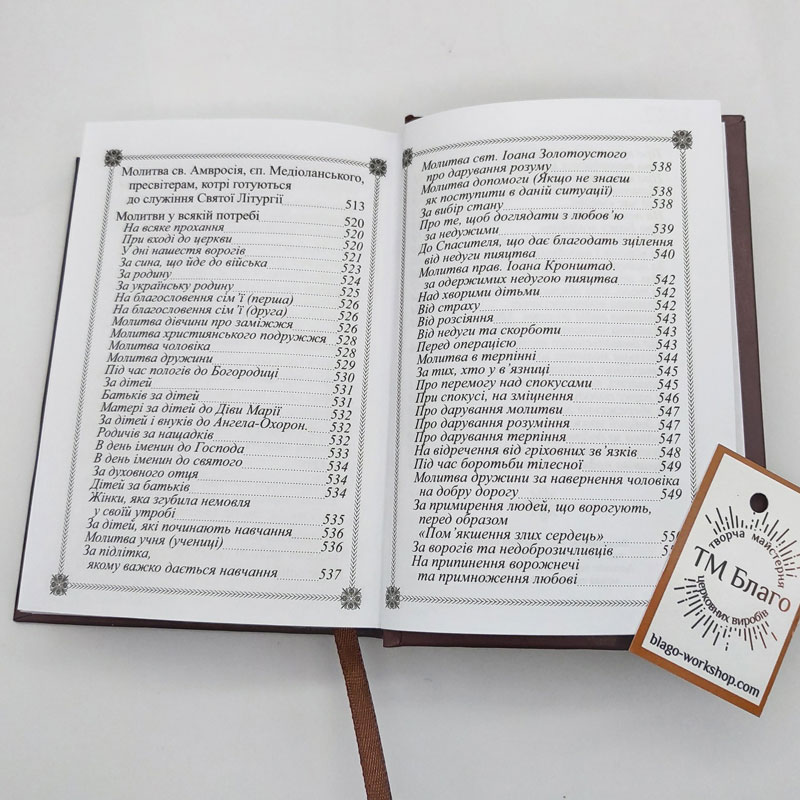 Молитва св. Амвросія, єп. Медіоланського,
пресвітерам, котрі готуються
до служіння Святої Літургії 513
Молитви у всякій потребі 520
На всяке прохання 520
При вході до церкви 520
У дні нашестя ворогів 521
За сина, що йде до війська 523
За родину 524
За українську родину 525
На благословення сім’ї (перша) 526
На благословення сім’ї (друга) 526
Молитва дівчини про заміжжя 526
Молитва християнського подружжя 528
Молитва чоловіка 528
Молитва дружини 529
Під час пологів до Богородиці 530
За дітей 531
Батьків за дітей 531
Матері за дітей до Діви Марії 532
За дітей і внуків до Ангела-Охорон. 532
Родичів за нащадків 532
В день іменин до Господа 533
В день іменин до святого 534
За духовного отця 534
Дітей за батьків 534
Жінки, яка згубила немовля
у своїй утробі 535
За дітей, які починають навчання 536
Молитва учня (учениці) 536
За підлітка,
якому важко дається навчання 537
Молитва свт. Іоана Золотоустого
про дарування розуму 538
Молитва допомоги (Якщо не знаєш
як поступити в даній ситуації) 538
За вибір стану 538
Про те, щоб доглядати з любов’ю
за недужими 539
До Спасителя, що дає благодать зцілення
від недуги пияцтва 540
Молитва прав. Іоана Кронштад.
за одержимих недугою пияцтва 542
Над хворими дітьми 542
Від страху 542
Від розсіяння 543
Від недуги та скорботи 543
Перед операцією 543
Молитва в терпінні 544
За тих, хто у в’язниці 545
Про перемогу над спокусами 545
При спокусі, на зміцнення 546
Про дарування молитви 547
Про дарування розуміння 547
Про дарування терпіння 547
На відречення від гріховних зв’язків 548
Під час боротьби тілесної 549
Молитва дружини за навернення чоловіка
на добру дорогу 549
За примирення людей, що ворогують,
перед образом
«Пом’якшення злих сердець»
За ворогів та недоброзичливців
На припинення ворожнечі
та примноження любові
творча майстерня
ТМ Благо
церковних виробів
blago-workshop.com